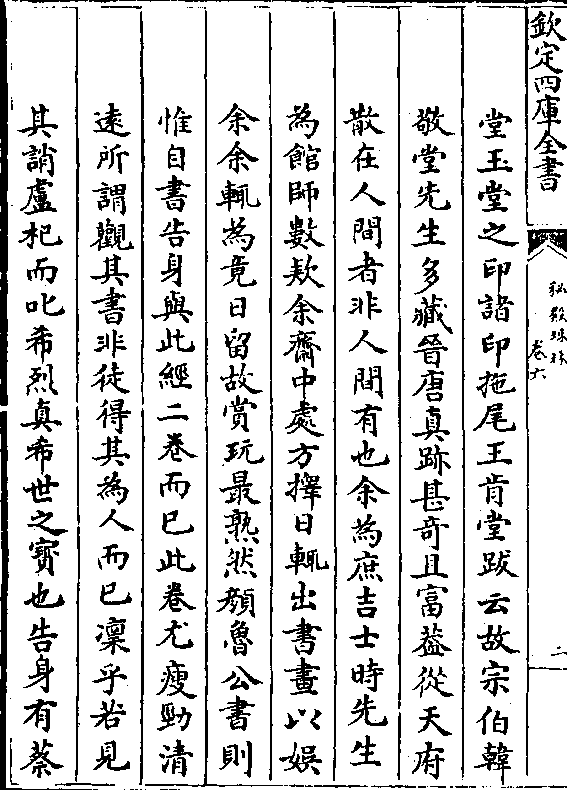 欽定四庫全書
秘殿珠林
卷六
二
堂玉堂之印諸印拖尾王肯堂跋云故宗伯韓
敬堂先生多藏晉唐真跡甚奇且富葢從天府
散在人間者非人間有也余為庶吉士時先生
為館師數欵余齋中處方擇日輒出書畫以娱
余余輒為竟日留故賞玩最熟然顔魯公書則
惟自書告身與此經二卷而已此卷尤瘦勁清
遠所謂觀其書非徒得其為人而已凜乎若見
其誚盧杞而叱希烈真希世之寳也告身有蔡